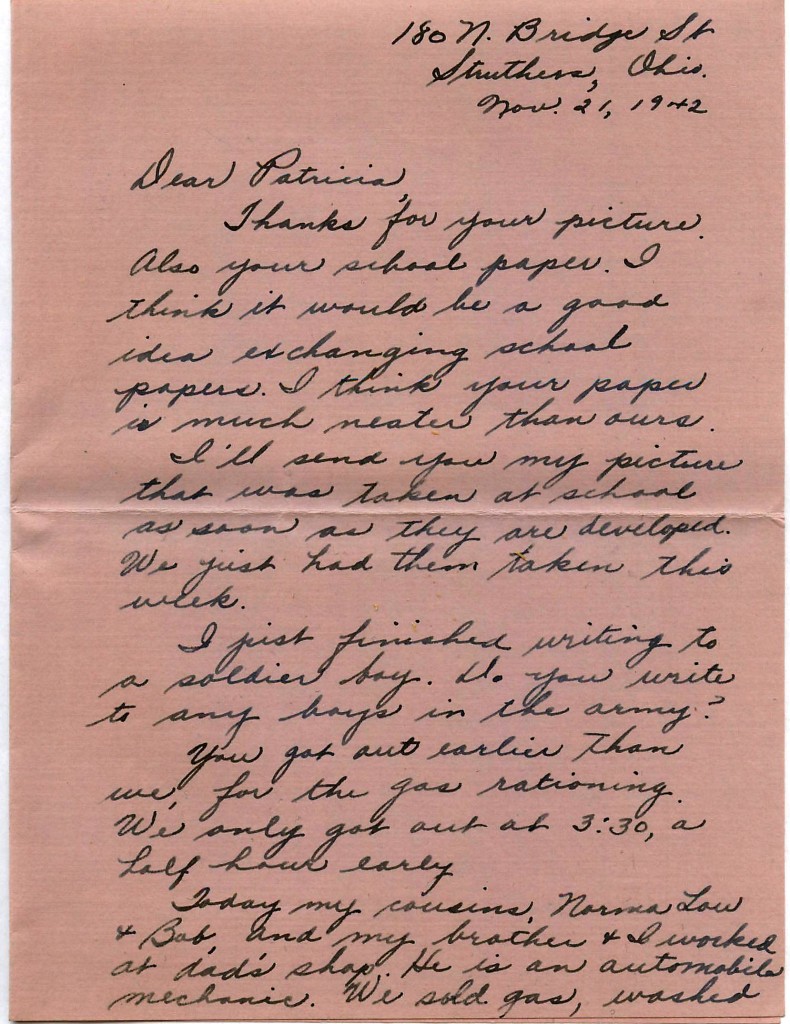 180 N. Bridge St
Struthers, Ohio.
Nov. 21, 1942
Dear Patricia,
Thanks for your picture.
Also your school paper. I
think it would be a good
idea exchanging school
papers. I think your paper
is much neater than ours.
I'll send you my picture
that was taken at school
as soon as they are developed.
We just had them taken this
week.
I just finished writing to
a soldier boy. Do you write
to any boys in the army?
You got out earlier than
we, for the gas rationing.
We only got out at 3:30, a
half hour early
Today my cousins, Norma Lou
& Bob, and my brother & I worked
at dad's shop. He is an automobile
mechanic. We sold gas, washed